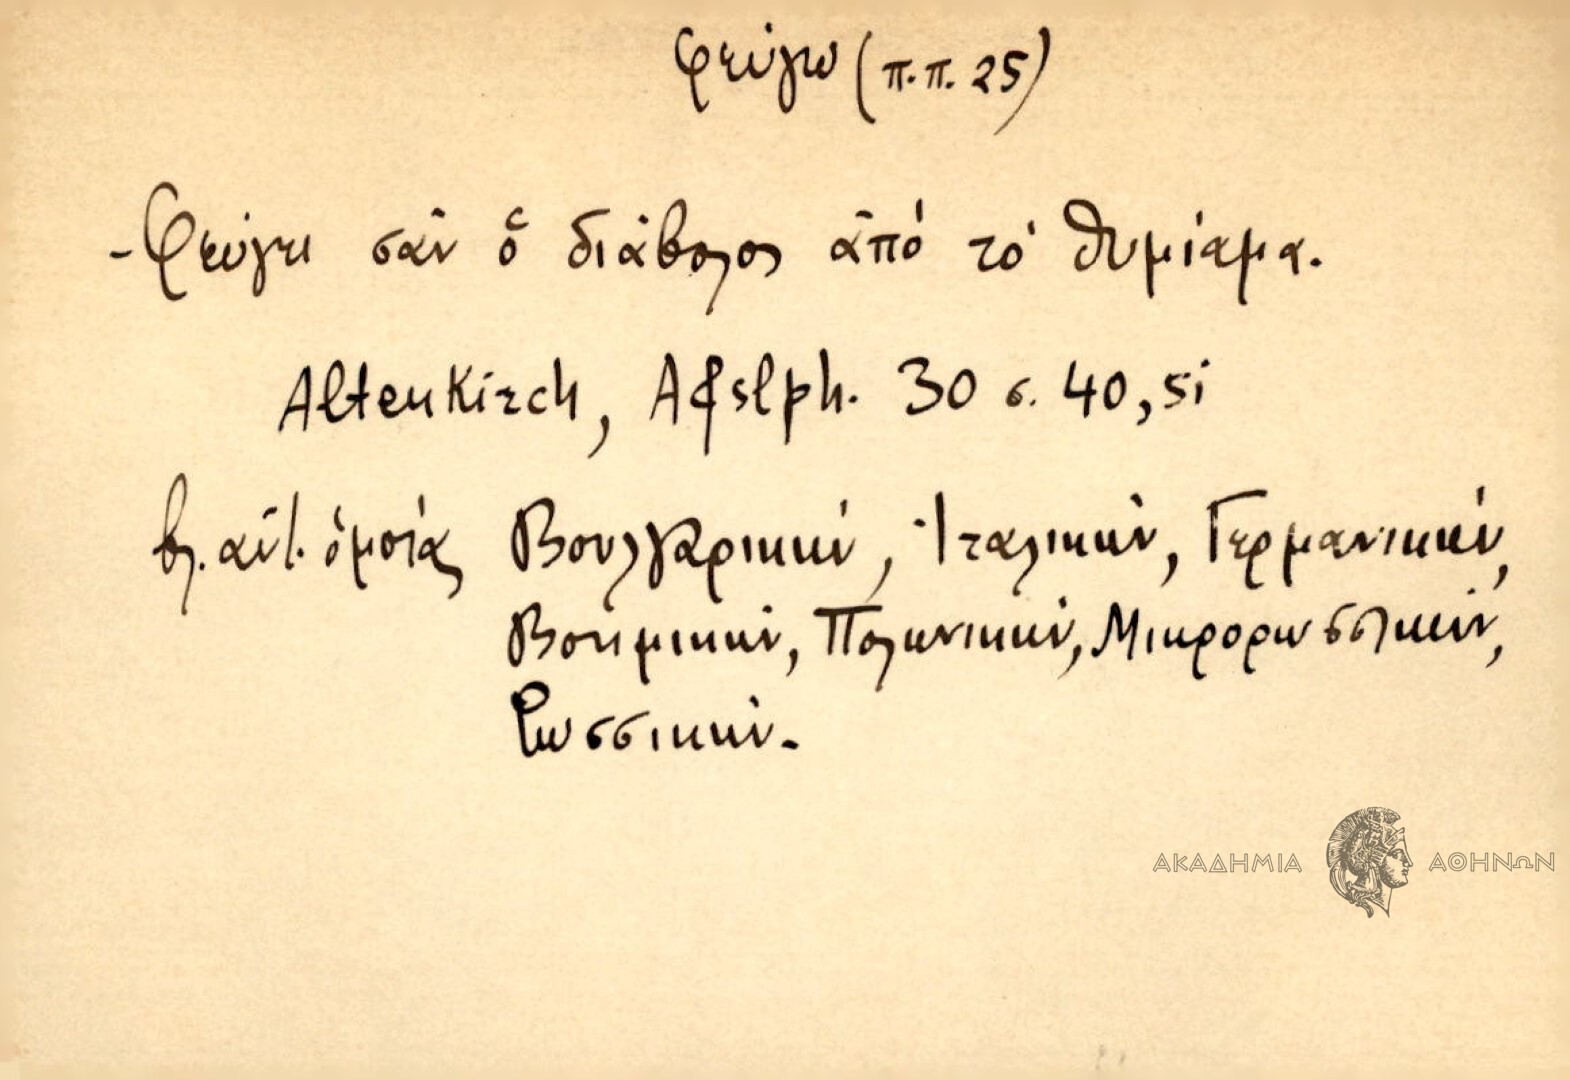 φεύγω (π.π. 25)
- Φεύγει σὰν ὁ διάβολος ἀπό τό θυμίαμα.
Altenkirch, Afslph. 30 σ. 40, 51
βλ. αὐτ. ὁμοίας Βουλγαρικήν, Ἰταλικήν, Γερμανικήν,
Βοημικήν, Πολωνικήν, Μικρορωσσικήν,
Ρωσσικήν.
ΑΚΑΔΗΜΙΑ ΑΘΗΝΩΝ